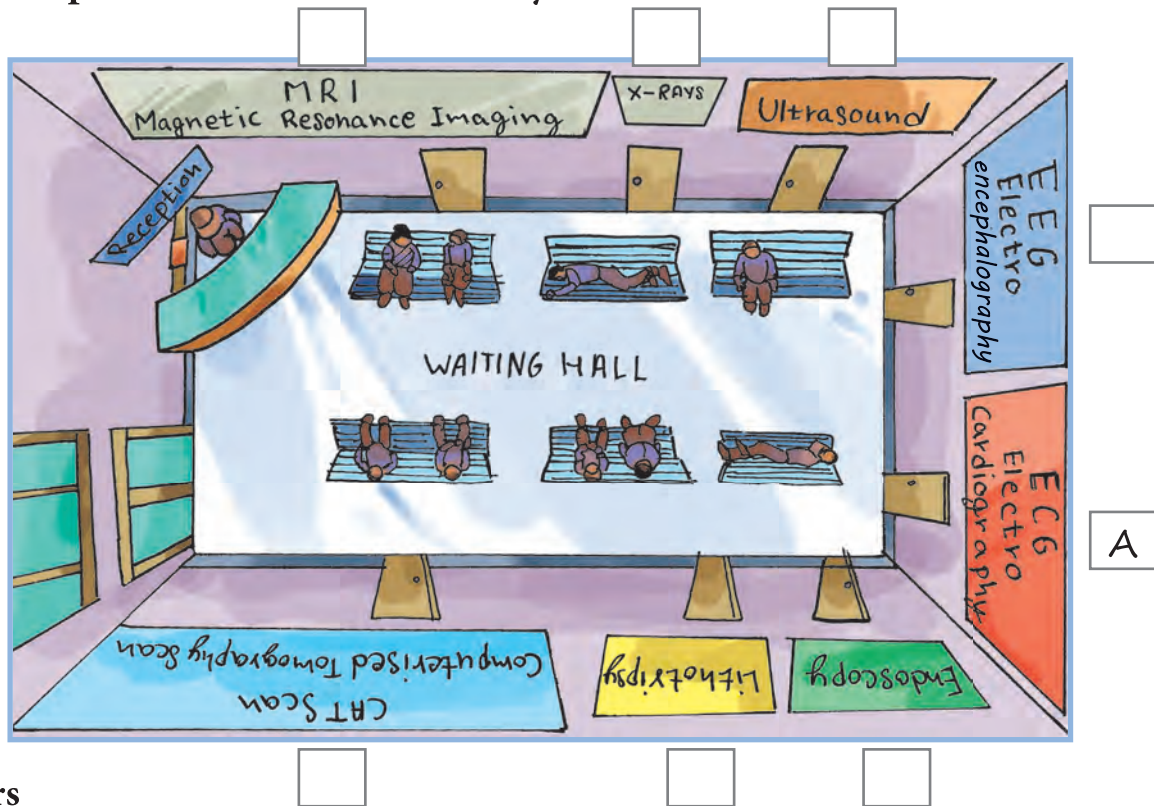 MRI
Magnetic Resonance Imaging
X-RAYS
Ultrasound
Reception
EEG
Electro
encephalography
WAITING HALL
ECG
Electro
Cardiography
A
CAT Scan
Computerised Tomography Scan
Lithotripsy
Endoscopy
rs